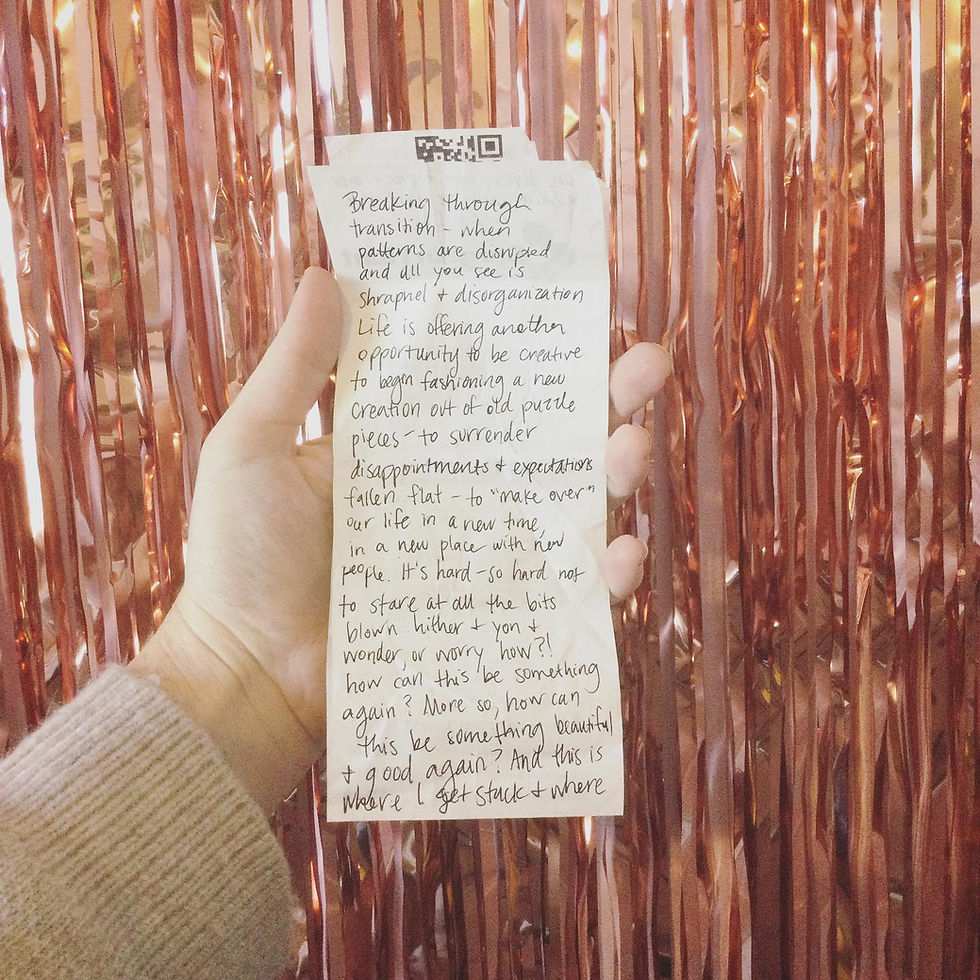 Breaking through
transition - when
patterns are disrupted
and all you see is
shrapnel + disorganization
Life is offering another
opportunity to be creative
to begin fashioning a new
creation out of old puzzle
pieces - to surrender
disappointments + expectations
fallen flat - to "make over"
our life in a new time,
in a new place with new
people. It's hard - so hard not
to stare at all the bits
blown hither + yon +
wonder, or worry how?!
how can this be something
again? More so, how can
this be something beautiful
+ good again? And this is
where I get stuck + where